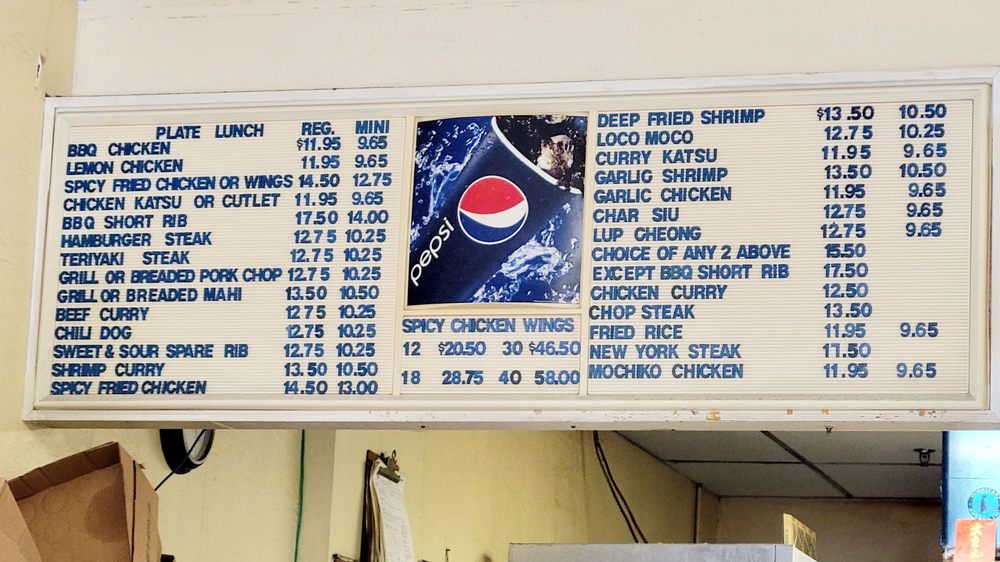 PLATE LUNCH REG. MINI
BBQ CHICKEN $11.95 9.65
LEMON CHICKEN 11.95 9.65
SPICY FRIED CHICKEN OR WINGS 14.50 12.75
CHICKEN KATSU OR CUTLET 11.95 9.65
BBQ SHORT RIB 17.50 14.00
HAMBURGER STEAK 12.75 10.25
TERIYAKI STEAK 12.75 10.25
GRILL OR BREADED PORK CHOP 12.75 10.25
GRILL OR BREADED MAHI 13.50 10.50
BEEF CURRY 12.75 10.25
CHILI DOG 12.75 10.25
SWEET & SOUR SPARE RIB 12.75 10.25
SHRIMP CURRY 13.50 10.50
SPICY FRIED CHICKEN 14.50 13.00
pepsi
SPICY CHICKEN WINGS
12 $20.50 30 $46.50
18 28.75 40 58.00
DEEP FRIED SHRIMP $13.50 10.50
LOCO MOCO 12.75 10.25
CURRY KATSU 11.95 9.65
GARLIC SHRIMP 13.50 10.50
GARLIC CHICKEN 11.95 9.65
CHAR SIU 12.75 9.65
LUP CHEONG 12.75 9.65
CHOICE OF ANY 2 ABOVE 15.50
EXCEPT BBQ SHORT RIB 17.50
CHICKEN CURRY 12.50
CHOP STEAK 13.50
FRIED RICE 11.95 9.65
NEW YORK STEAK 17.50
MOCHIKO CHICKEN 11.95 9.65